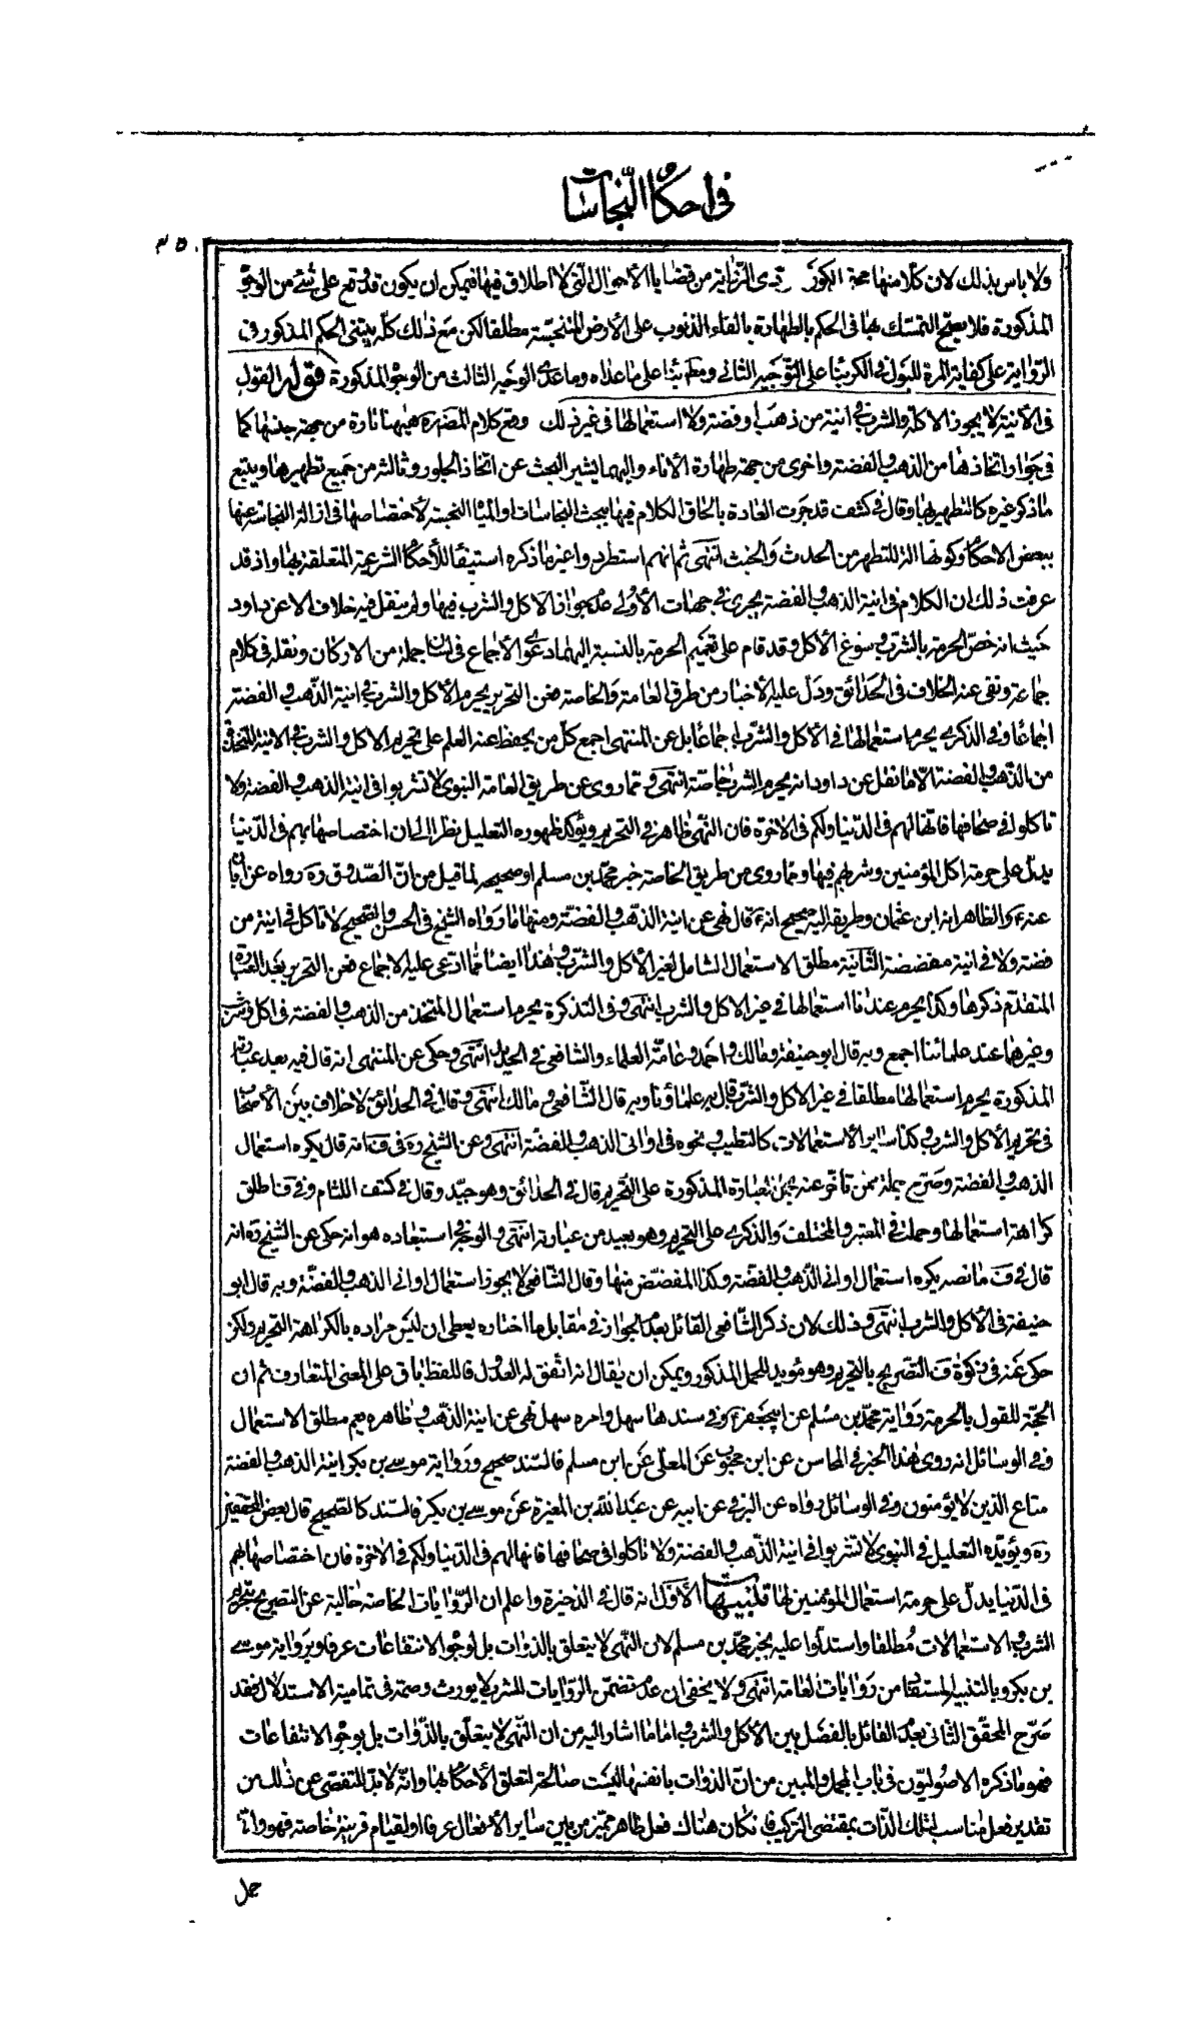 في احكام النجاسات
٣٥٠
ولا باس بذلك لان كلا منها محل الكور تدى الرواية من قضايا الأحوال التي لا اطلاق فيها فيمكن ان يكون قد وقع على شيء من الوجوه
المذكورة فلا يصح التمسك بها في الحكم بالطهارة بالقاء الذنوب على الأرض المتنجسة مطلقا لكن مع ذلك كله يبتنى الحكم المذكور في
الرواية على كفاية المرة للبول في الكر بناء على التوجيه الثاني ومطلقا على ما عداه وما عدى الوجه الثالث من الوجوه المذكورة قوله القول
في الآنية لا يجوز الاكل والشرب في انية من ذهب او فضة ولا استعمالها في غير ذلك وقع كلام المصنف ره هيهنا تارة من جهة جنسها كما
في جواز اتخاذها من الذهب والفضة واخرى من جهة طهارة الأناء واليهما يشير البحث عن اتخاذ الجلود وثالثة من جميع تطهيرها ويتبع
ما ذكر غيره كالتطهير بها وقال في كشف قد جرت العادة بالحاق الكلام فيها ببحث النجاسات او المياه النجسة لأختصاصها في ازالة النجاسة عنها
ببعض الاحكام وكونها الة للتطهر من الحدث والخبث انتهى ثم انهم استطردوا غير ما ذكره استيفاء للأحكام الشرعية المتعلقة بها واذ قد
عرفت ذلك ان الكلام في انية الذهب والفضة يجري في جهات الأولى عدم جواز الاكل والشرب فيها ولم ينقل فيه خلاف الا عن داود
حيث انه خص الحرمة بالشرب وسوغ الأكل وقد قام على تعميم الحرمة بالنسبة اليهما دعوى الأجماع في السنة جملة من الاركان ونقله في كلام
جماعة ونفى عنه الخلاف في الحدائق ودل عليه الأخبار من طرق العامة والخاصة فعن التحرير يحرم الأكل والشرب في انية الذهب والفضة
اجماعا وفي الذكرى يحرم استعمالها في الأكل والشرب اجماعا بل عن المنتهى اجمع كل من يحفظ عنه العلم على تحريم الاكل والشرب في الانية المتخذة
من الذهب والفضة الا ما نقل عن داود انه يحرم الشرب خاصة انتهى ومما روى عن طريق العامة النبوي لا تشربوا في انية الذهب والفضة ولا
تاكلوا في صحافها فانها لهم في الدنيا ولكم في الاخرة فان النهى ظاهر في التحريم ويؤكد ظهوره التعليل نظرا الى ان اختصاصها بهم في الدنيا
يدل على حرمة اكل المؤمنين وشربهم فيها ومما روى من طريق الخاصة خبر محمد بن مسلم او صحيحه لما قيل من ان الصدوق ره رواه عن ابان
عنه ع والظاهر انه ابن عثمان وطريقه اليه صحيح انه ع قال نهى عن انية الذهب والفضة ومنها ما رواه الشيخ في الحسن والصحيح لا تاكل في انية من
فضة ولا في انية مفضضة الثانية مطلق الاستعمال الشامل لغير الأكل والشرب وهذا ايضا مما ادعى عليه الاجماع فعن التحرير بعد العبارة
المتقدم ذكرها وكذا يحرم عندنا استعمالها في غير الاكل والشرب انتهى وفي التذكرة يحرم استعمال المتخذ من الذهب والفضة في اكل وشرب
وغيرهما عند علمائنا اجمع وبه قال ابو حنيفة ومالك واحمد وعامة العلماء والشافعي في الجديد انتهى وحكى عن المنتهى انه قال فيه بعد عبارته
المذكورة يحرم استعمالها مطلقا في غير الاكل والشرب قال به علماؤنا وبه قال الشافعي ومالك انتهى وقال في الحدائق لا خلاف بين الأصحاب
في تحريم الأكل والشرب وكذا سائر الأستعمالات كالتطيب ونحوه في اواني الذهب والفضة انتهى وعن الشيخ ره في ف انه قال يكره استعمال
الذهب والفضة وصرح جملة ممن تاخر عنه بحمل العبارة المذكورة على التحريم قال في الحدائق وهو جيد وقال في كشف اللثام وفي ف اطلق
كراهة استعمالها وحملت في المعتبر والمختلف والذكرى على التحريم وهو بعيد من عبارته انتهى والوجه في استبعاده هو انه حكى عن الشيخ ره انه
قال في ف ما نصه يكره استعمال اواني الذهب والفضة وكذا المفضض منها وقال الشافعي لا يجوز استعمال اواني الذهب والفضة وبه قال ابو
حنيفة في الأكل والشرب انتهى وذلك لان ذكر الشافعي القائل بعدم الجواز في مقابل ما اختاره يعطى ان ليس مراده بالكراهة التحريم ولكن
حكى عنه في زكوة ف التصريح بالتحريم وهو مؤيد للحمل المذكور ويمكن ان يقال انه اتفق له العدول فاللفظ باق على المعنى المتعارف ثم ان
الحجة للقول بالحرمة رواية محمد بن مسلم عن ابيجعفر ع وفي سندها سهل وامره سهل نهى عن انية الذهب وظاهره يعم مطلق الاستعمال
وفي الوسائل انه روى هذا الخبر في المحاسن عن ابن محبوب عن المعلى عن ابن مسلم فالسند صحيح ورواية موسى بن بكر انية الذهب والفضة
متاع الذين لا يؤمنون وفي الوسائل رواه عن البرقي عن ابيه عن عبد الله بن المغيرة عن موسى بن بكر فالسند كالصحيح قال بعض المحققين
ره ويؤيده التعليل في النبوي لا تشربوا في انية الذهب والفضة ولا تاكلوا في صحافها فانها لهم في الدنيا ولكم في الاخرة فان اختصاصها بهم
في الدنيا يدل على حرمة استعمال المؤمنين لها تنبيهات الأول انه قال في الذخيرة واعلم ان الروايات الخاصة خالية عن التصريح بتحريم
الشرب والاستعمالات مطلقا واستدلوا عليه بخبر محمد بن مسلم لان النهى لا يتعلق بالذوات بل لوجوه الانتفاعات عرفا وبرواية موسى
بن بكر وبالتنبيه المستفاد من روايات العامة انتهى ولا يخفى ان عدم تضمن الروايات للشرب لا يورث وصمة في تمامية الاستدلال فقد
صرح المحقق الثاني بعدم القائل بالفصل بين الأكل والشرب اما ما اشار اليه من ان النهى لا يتعلق بالذوات بل بوجوه الانتفاعات
فهو ما ذكره الاصوليون في باب المجمل والمبين من ان الذوات بانفسها ليست صالحة لتعلق الأحكام بها وانه لا بد للتفصى عن ذلك من
تقدير فعل مناسب لتلك الذات بمقتضى التركيب فان كان هناك فعل ظاهر مميز من بين سائر الأفعال عرفا او لقيام قرينة خاصة فهو والا
حمل